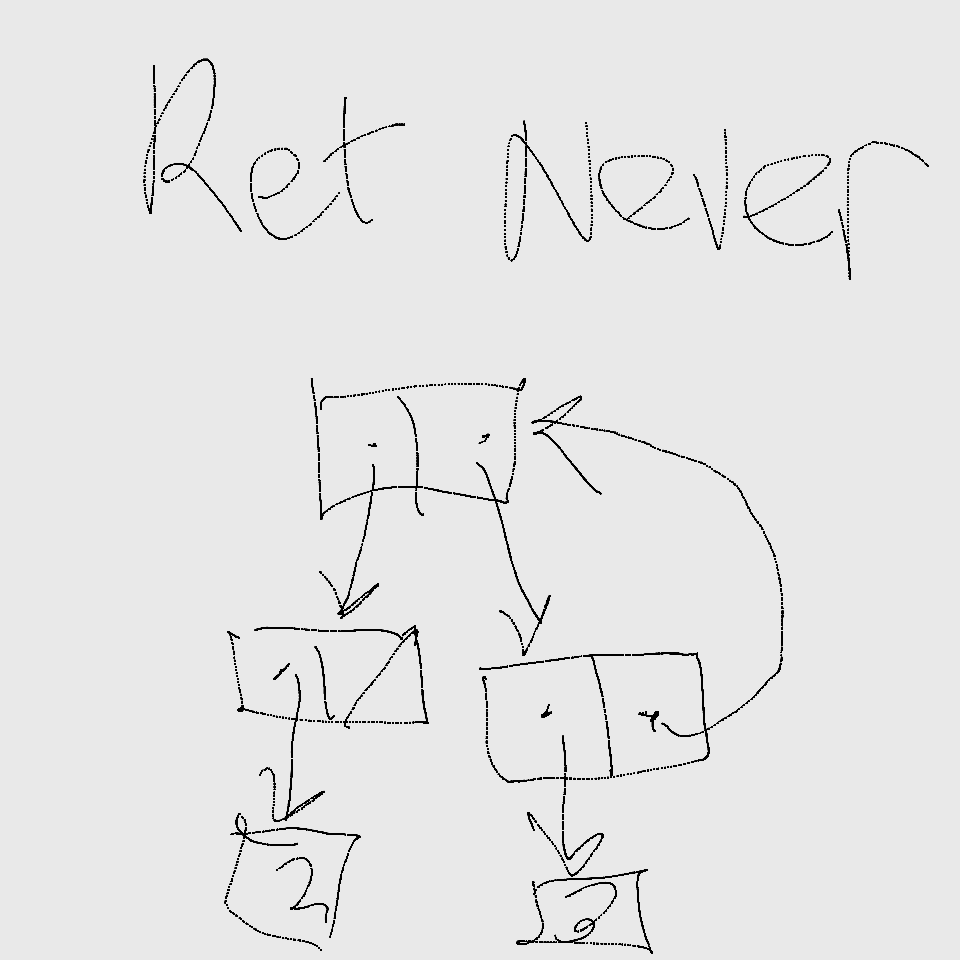 Ret Never
2 3